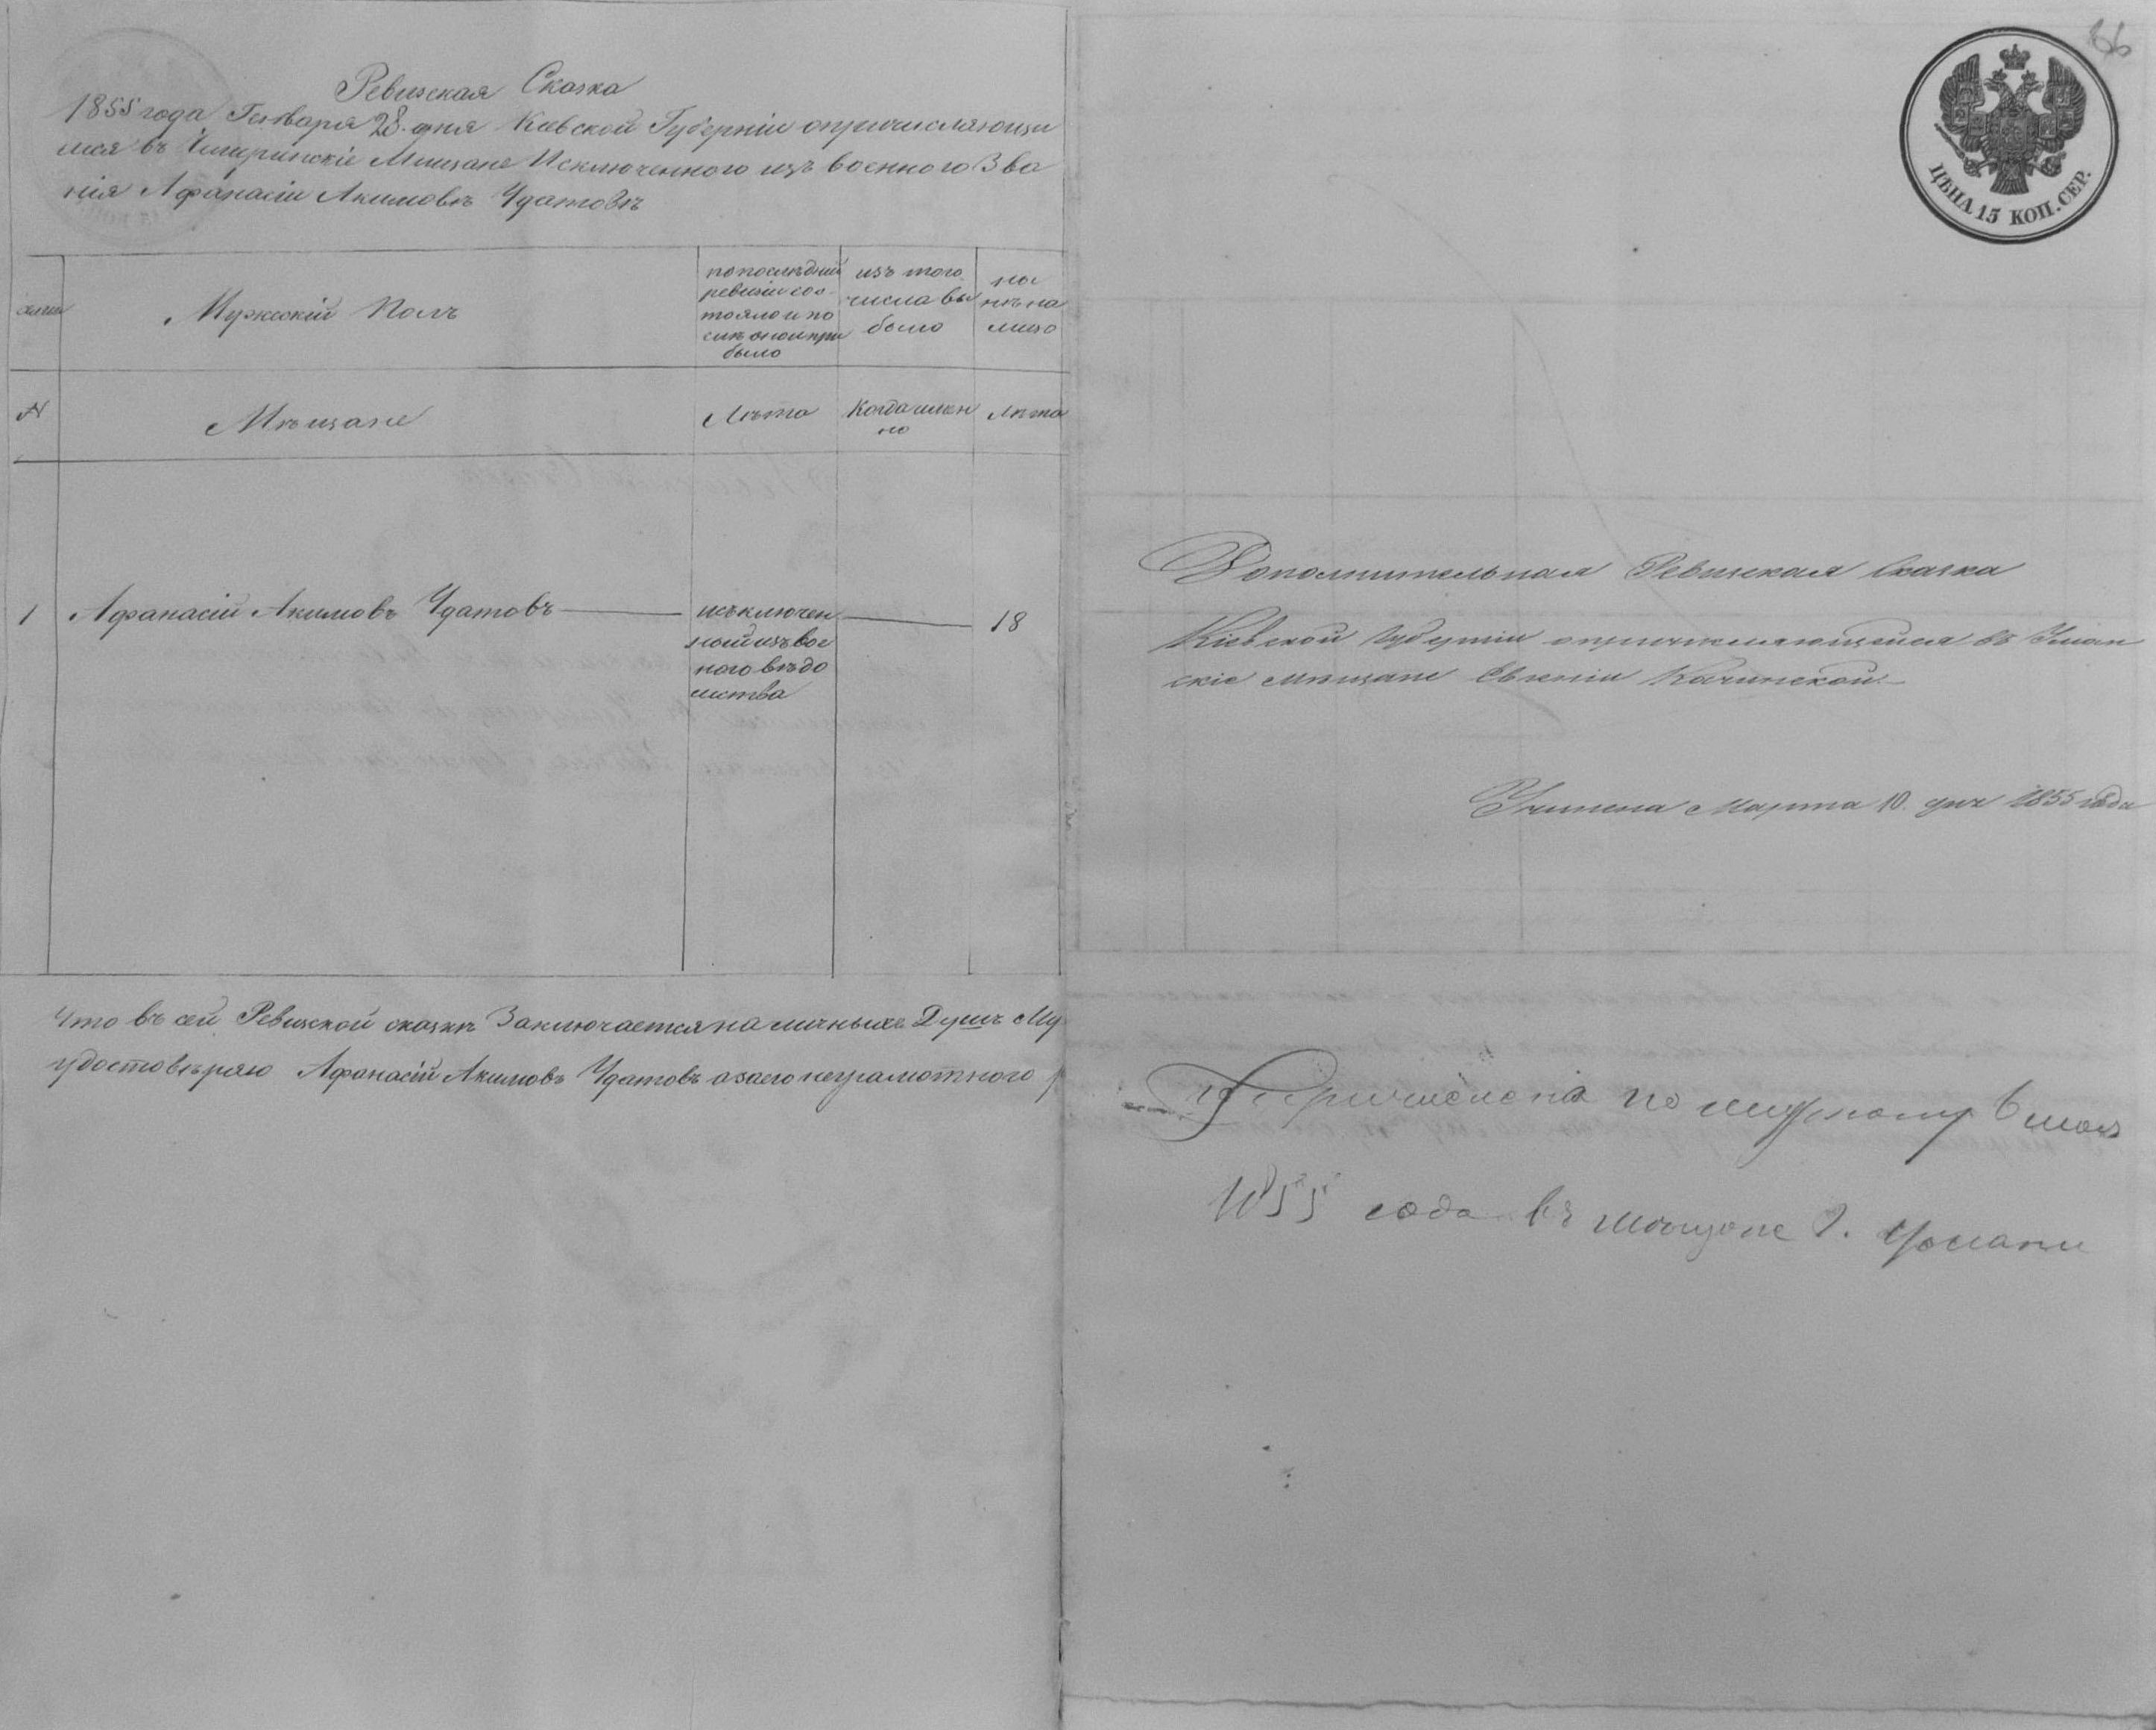 Ревизская Сказка
1855 года Генваря 28. дня Киевской Губернiи опричисляющи
мся въ Чигиринскiе Мищане Исключенного изъ военного Зва
нiя Афанасiи Акимовъ Удатовъ
Мужескiй Полъ
по последней
ревизiи сос
тояло и по
слѣ оной при
было
изъ того
числа вы
было
на
лицо
N
Мѣщане
Лѣта
Когда имен
но
Лѣта
1 Афанасiй Акимовъ Удатовъ
изъключен
ный изъ вое
ного вѣдо
мства
18
Что въ сей Ревизской сказкѣ Заключается наличныхъ Душъ Му
удостовѣряю Афанасiй Акимовъ Удатовъ а заего неграмотного
66
ЦѢНА 15 КОП. СЕР.
Дополнительная Ревизская Сказка
Кiевской Губернiи опричисляющейся въ Уман
скiе мѣщане Евгенiи Качинской
Учинена Марта 10. дня 1855 года
Причислена по
1855 года въ мещане г. Умани